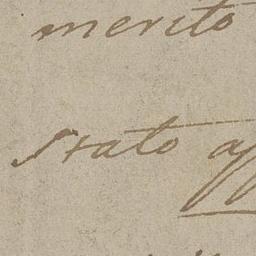 merito
stato